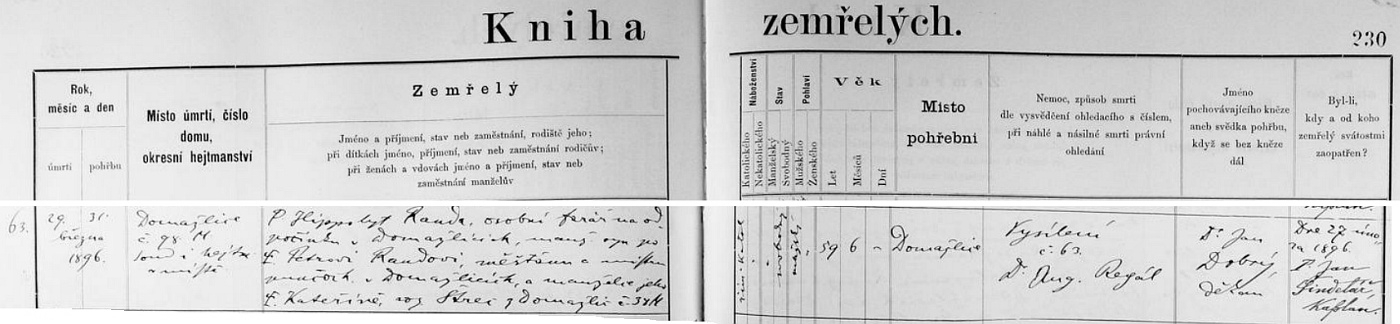 Kniha zemřelých.
230
Rok,
měsíc a den
úmrtí
pohřbu
Místo úmrtí, číslo
domu,
okresní hejtmanství
Zemřelý
Jméno a příjmení, stav neb zaměstnání, rodiště jeho;
při dítkách jméno, příjmení, stav neb zaměstnání rodičův;
při ženách a vdovách jméno a příjmení, stav neb
zaměstnání manželův
Náboženství
Katolického
Nekatolického
Stav
Manželský
Svobodný
Pohlaví
Mužského
Ženského
Věk
Let
Měsíců
Dní
Místo
pohřební
Nemoc, způsob smrti
dle vysvědčení ohledacího s číslem,
při náhlé a násilné smrti právní
ohledání
Jméno
pochovávajícího kněze
aneb svědka pohřbu,
když se bez kněze
dál
Byl-li,
kdy a od koho
zemřelý svátostmi
zaopatřen?
63.
29.
března
1896.
31.
Domažlice
č. 98. M
soud i hejtm.
a místě
P. Hippolyt Randa, osobní farář na od
počinku v Domažlicích, manž. syn po
Petrovi Randovi, měšťanu a mistru
v Domažlicích, a manželce jeho
Kateřině, roz. Strer z Domažlic č. 34 M
svobodný
mužský
59
6
"
Domažlice
Vysílení
č. 63.
Dr. Aug. Regál
Dr. Jan
Dobrý,
děkan
Dne 27. úno-
ra 1896.
P. Jan
Šindelář,
kaplan.